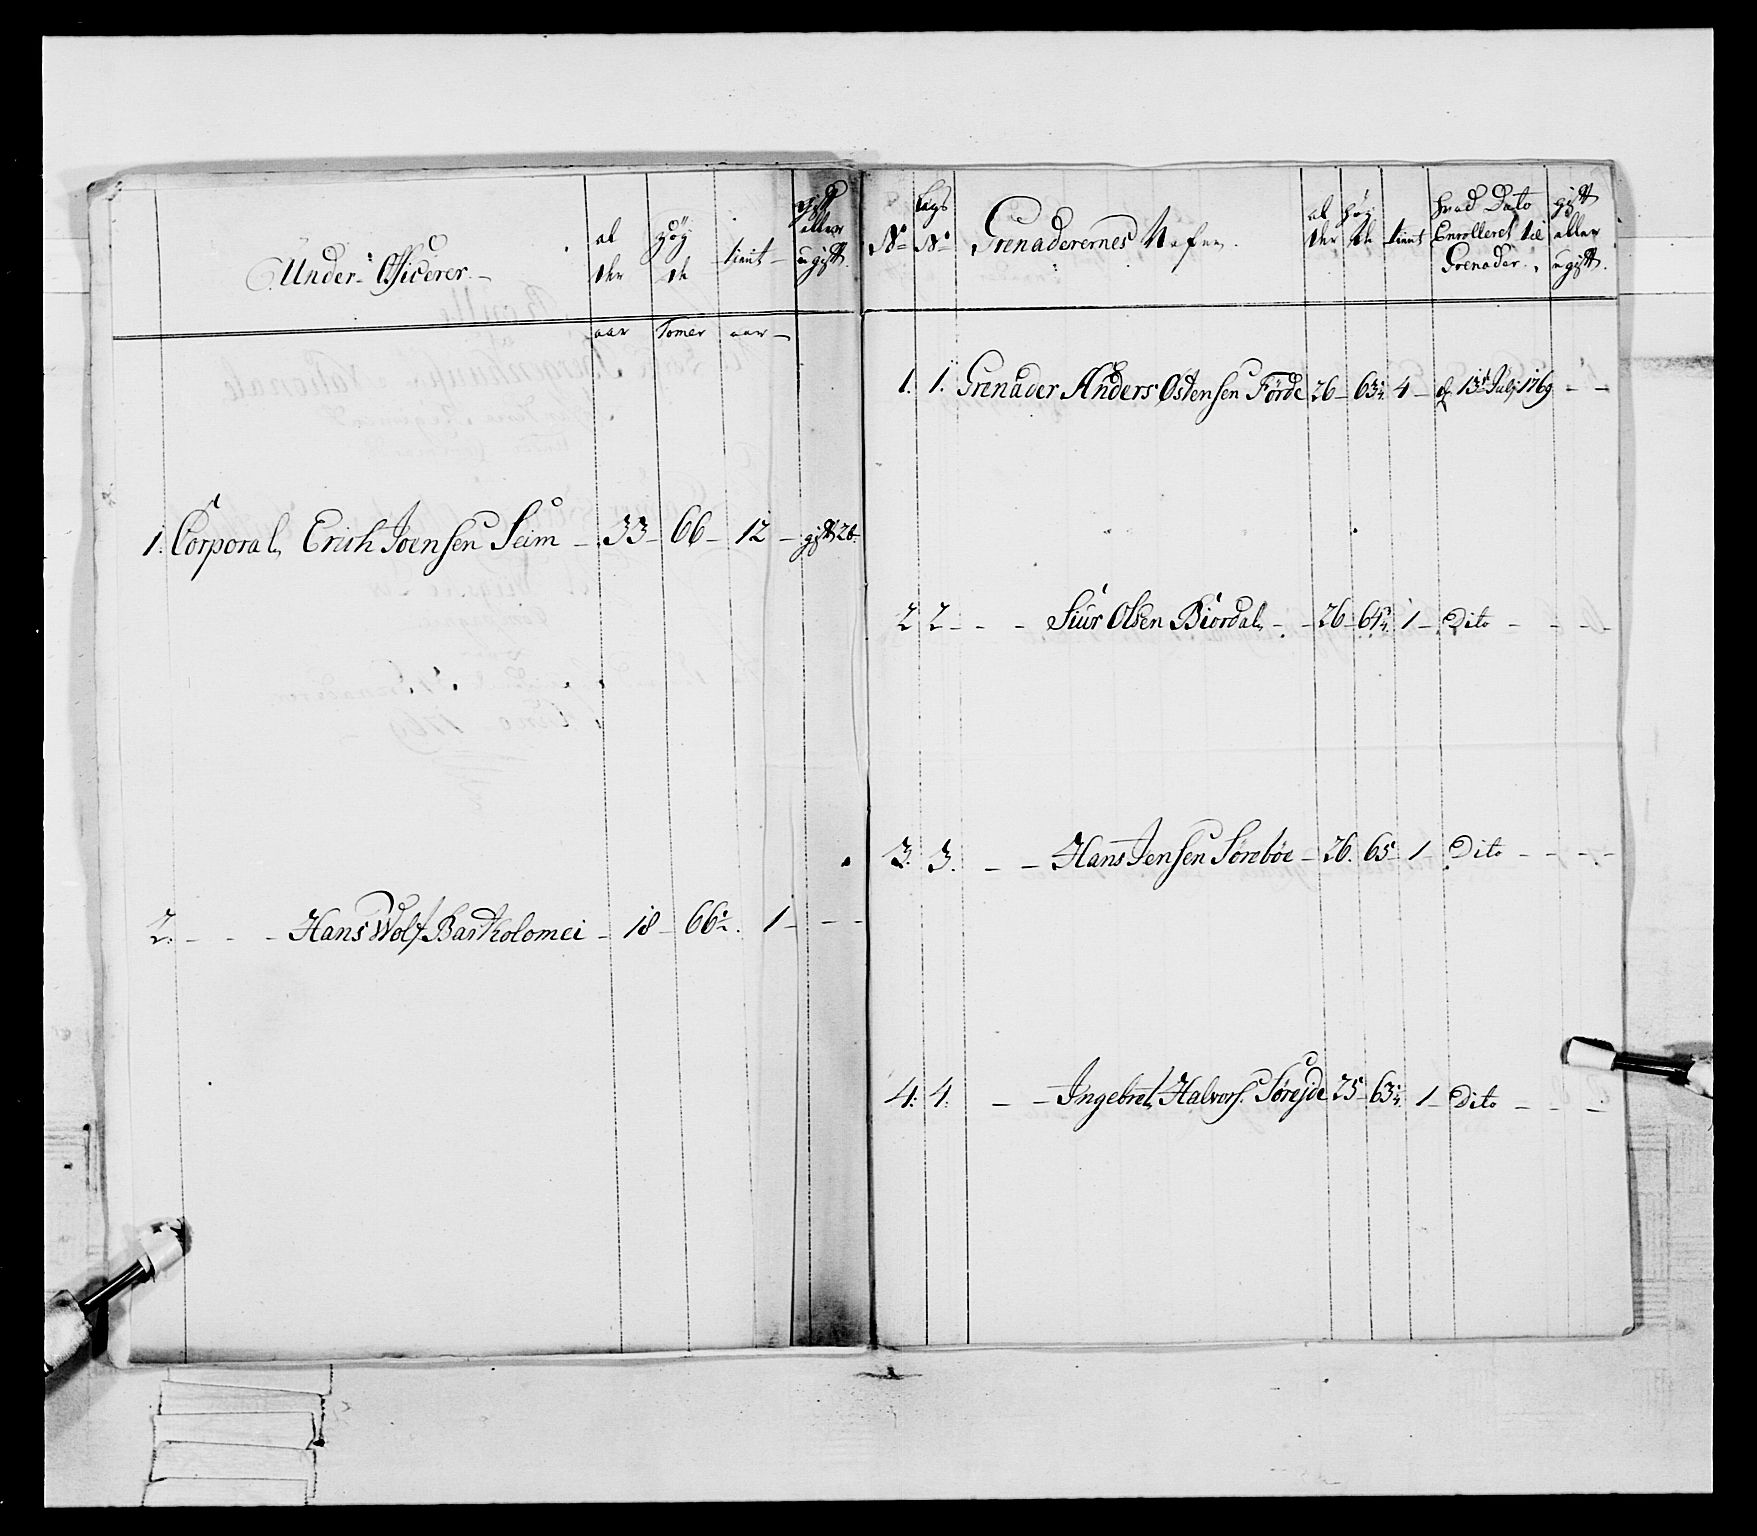 Under-Officerer.
al der
høy de
tient
gift eller ugift
aar Tomer aar
1. Corporal Erich Joensen Seim 33 66 12 gift
2. Hans Wolf Bartholomei 18 66 1
No
Legs No
Grenaderernes Nafne.
al der
høy de
tient
hvad Dato Enrolleret til Grenader.
gift eller ugift.
1. 1. Grenader Anders Østensen Förde 26 63 4 13 July 1769
2 2 Siur Olsen Biordal 26 1 Dito
3. 3. Hans Jensen Sørebøe 26. 65 1 Dito
4. 4. Ingebret Halvors. Sørejde 25 63 1 Dito